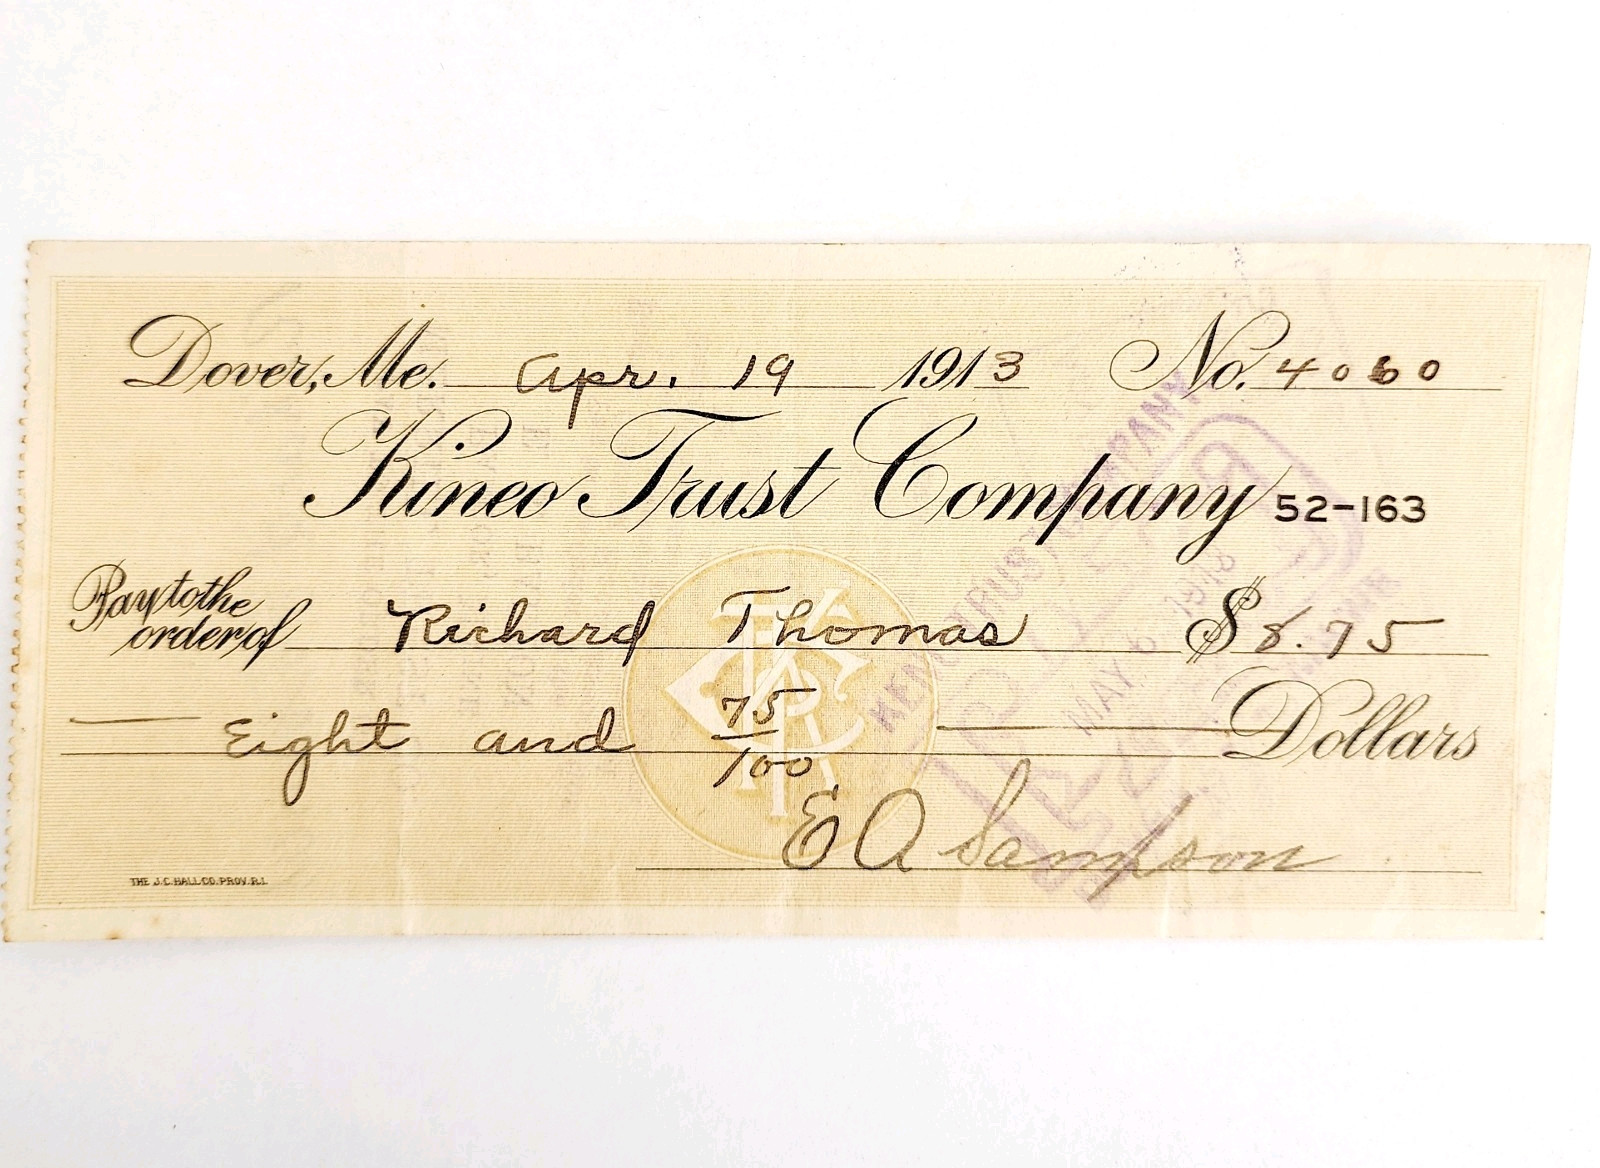 Dover, Me. Apr. 19 1913 No. 4060
Kineo Trust Company 52-163
Pay to the order of Richard Thomas $8.75
Eight and 75/100 Dollars
E A Sampson
THE J.C. HALL CO. PROV. R.I.
TRUST COMPANY
MAY 6